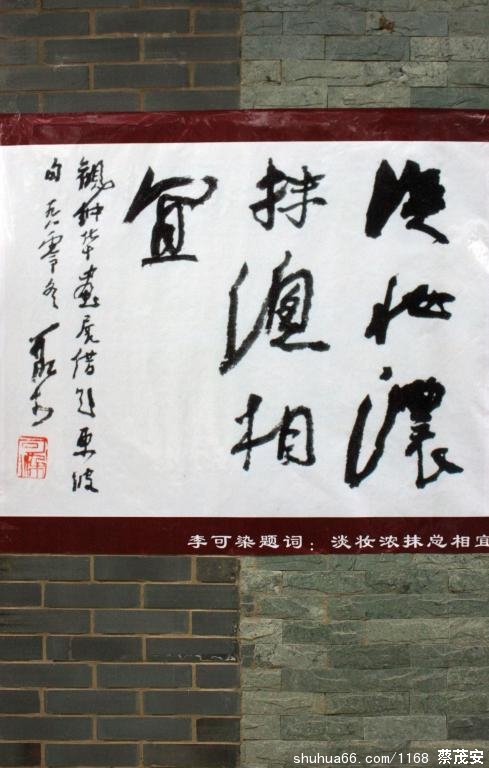 淡妝濃
抹總相
宜
觀鍾华畫展借题東坡
句 一九八零年冬 可染
可染
李可染题词：淡妆浓抹总相宜
shuhua66.com/1168 蔡茂安